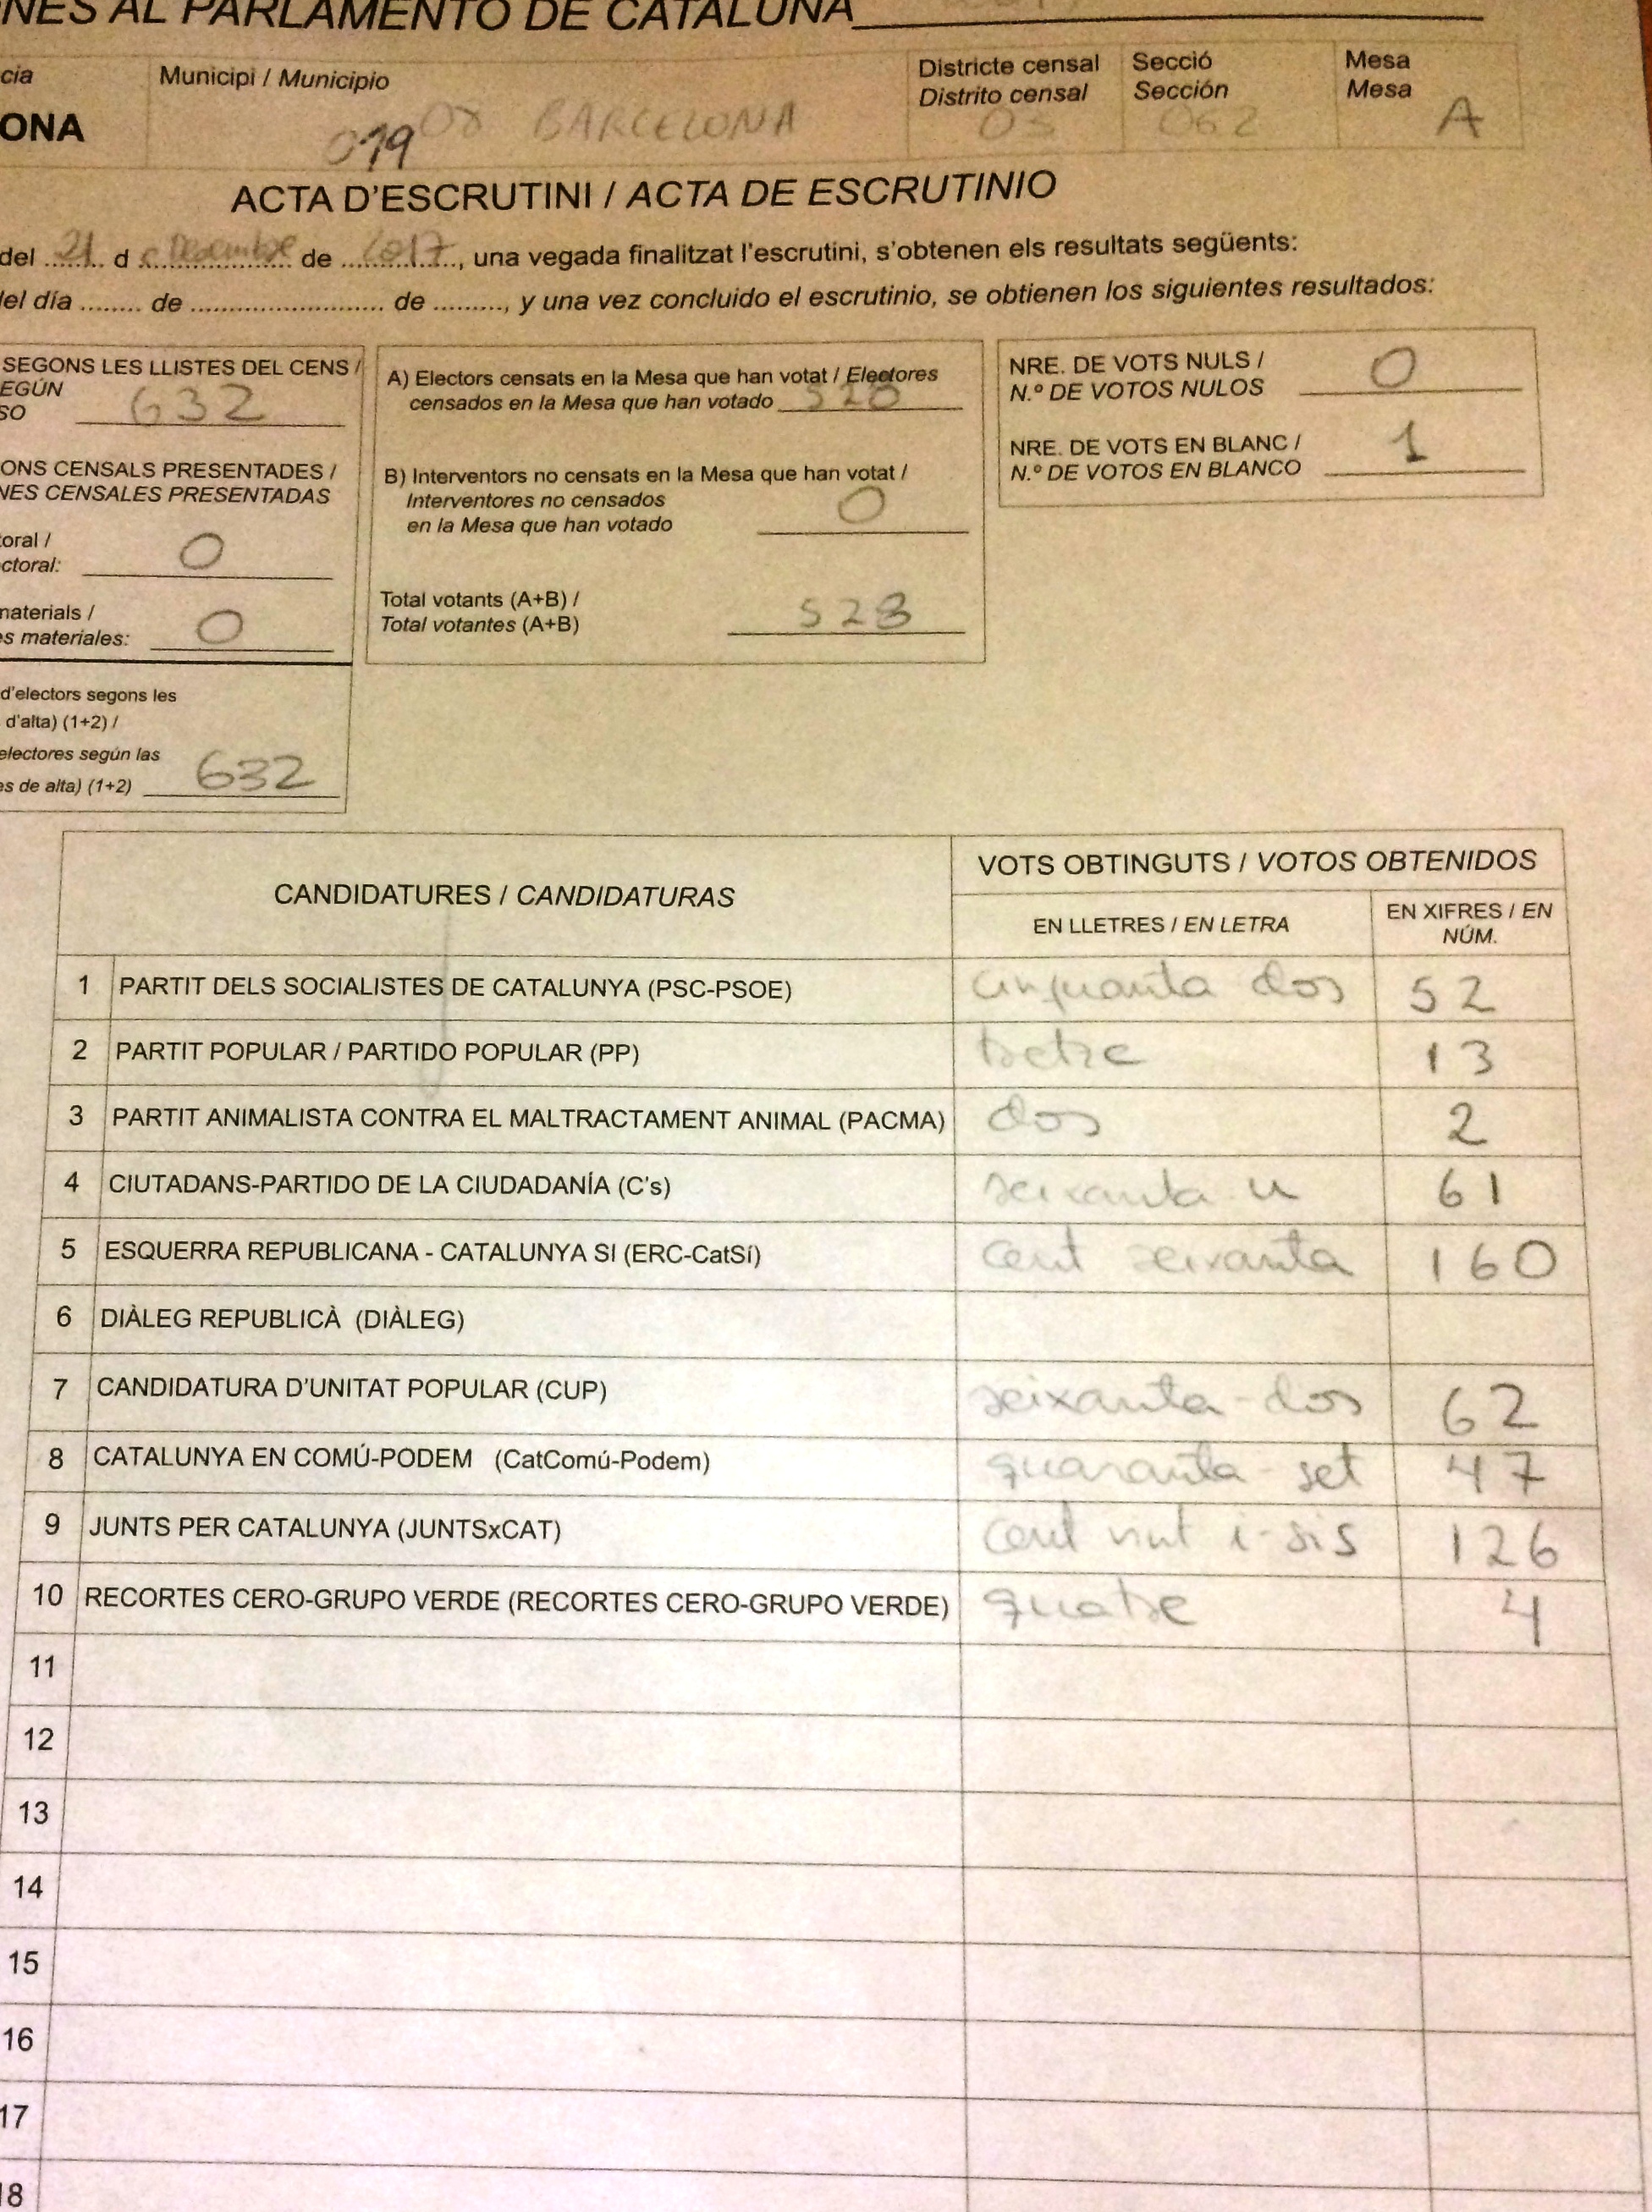 NES AL PARLAMENTO DE CATALUÑA
cia Municipi / Municipio Districte censal Secció Mesa
Distrito censal Sección Mesa
ONA 019 08 BARCELONA 03 062 A
ACTA D'ESCRUTINI / ACTA DE ESCRUTINIO
del 21 d e Desembre de 2017, una vegada finalitzat l'escrutini, s'obtenen els resultats següents:
el día ........ de ........................ de ........., y una vez concluido el escrutinio, se obtienen los siguientes resultados:
SEGONS LES LLISTES DEL CENS /
EGÚN
SO 632
ONS CENSALS PRESENTADES /
NES CENSALES PRESENTADAS
toral /
ctoral: 0
materials /
es materiales: 0
d'electors segons les
d'alta) (1+2) /
electores según las
es de alta) (1+2) 632
A) Electors censats en la Mesa que han votat / Electores
censados en la Mesa que han votado 528
B) Interventors no censats en la Mesa que han votat /
Interventores no censados
en la Mesa que han votado 0
Total votants (A+B) /
Total votantes (A+B) 528
NRE. DE VOTS NULS /
N.º DE VOTOS NULOS 0
NRE. DE VOTS EN BLANC /
N.º DE VOTOS EN BLANCO 1
CANDIDATURES / CANDIDATURAS
VOTS OBTINGUTS / VOTOS OBTENIDOS
EN LLETRES / EN LETRA
EN XIFRES / EN
NÚM.
1 PARTIT DELS SOCIALISTES DE CATALUNYA (PSC-PSOE) cinquanta dos 52
2 PARTIT POPULAR / PARTIDO POPULAR (PP) tretze 13
3 PARTIT ANIMALISTA CONTRA EL MALTRACTAMENT ANIMAL (PACMA) dos 2
4 CIUTADANS-PARTIDO DE LA CIUDADANÍA (C's) seixanta-u 61
5 ESQUERRA REPUBLICANA - CATALUNYA SI (ERC-CatSí) cent seixanta 160
6 DIÀLEG REPUBLICÀ (DIÀLEG)
7 CANDIDATURA D'UNITAT POPULAR (CUP) seixanta-dos 62
8 CATALUNYA EN COMÚ-PODEM (CatComú-Podem) quaranta-set 47
9 JUNTS PER CATALUNYA (JUNTSxCAT) cent vint i-sis 126
10 RECORTES CERO-GRUPO VERDE (RECORTES CERO-GRUPO VERDE) quatre 4
11
12
13
14
15
16
17
18